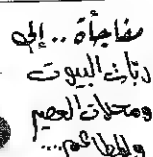 مفاجأة .. إلى
ربات البيوت
ومحلات العصير
والمطاعم ...